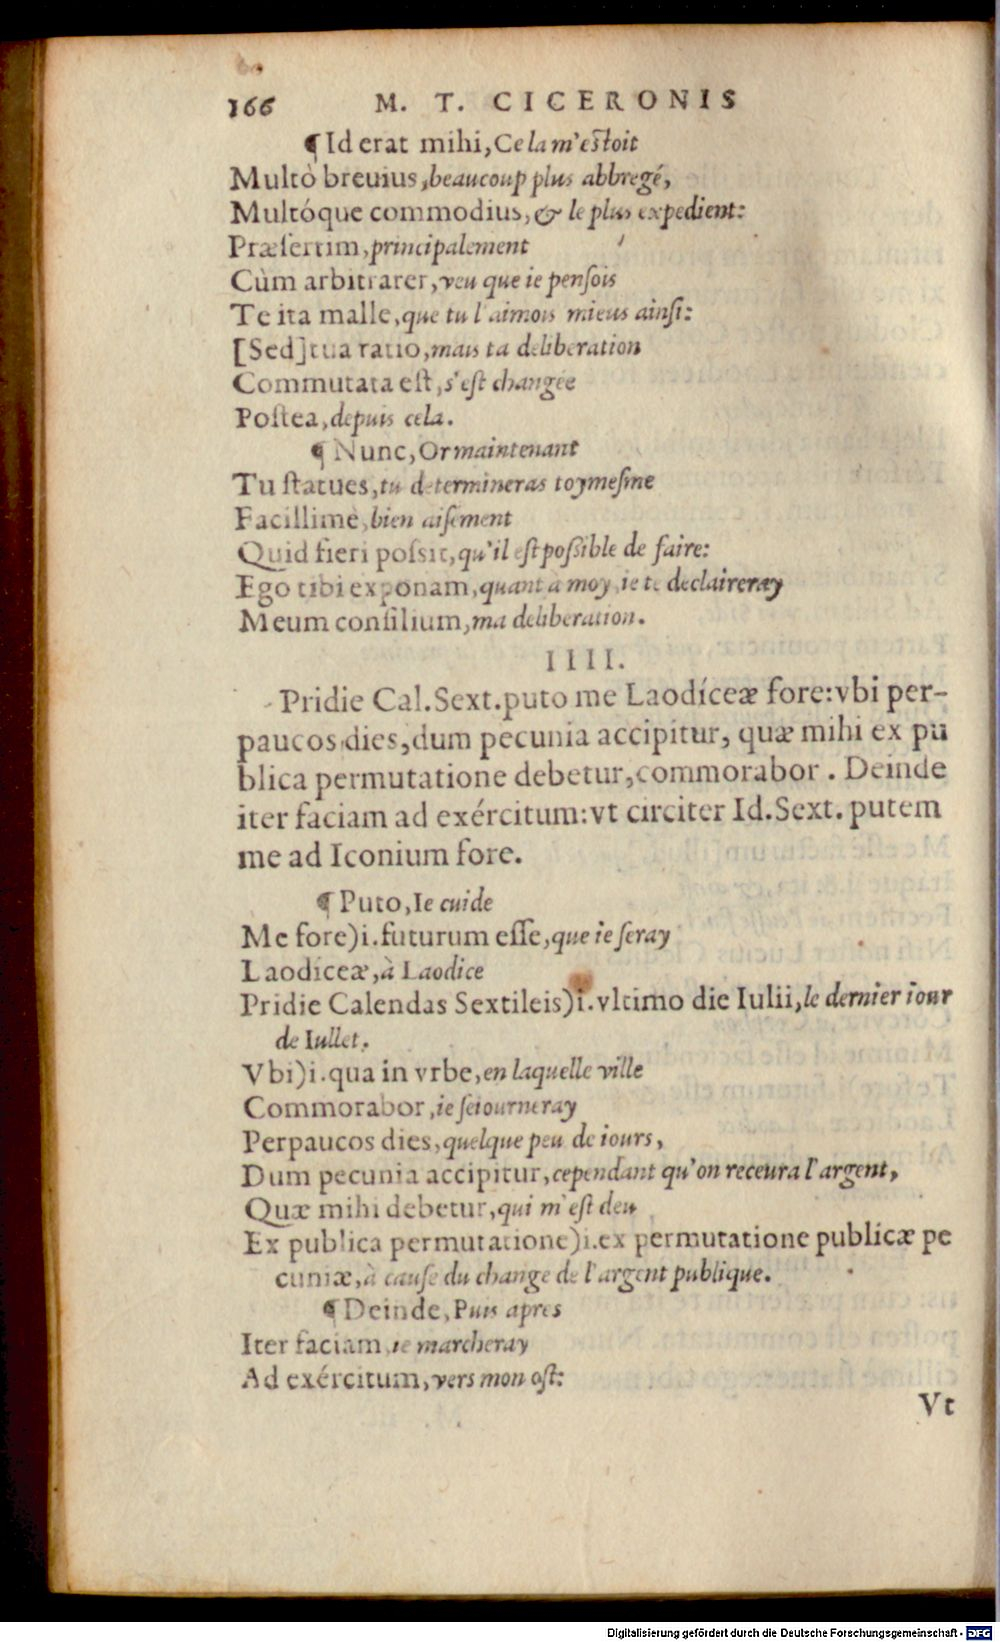 166 M. T. CICERONIS
¶Id erat mihi, Ce la m'estoit
Multò breuius, beaucoup plus abbregé,
Multóque commodius, & le plus expedient:
Præsertim, principalement
Cùm arbitrarer, veu que ie pensois
Te ita malle, que tu l'aimois mieus ainsi:
[Sed]tua ratio, mais ta deliberation
Commutata est, s'est changée
Postea, depuis cela.
¶ Nunc, Or maintenant
Tu statues, tu determineras toymesme
Facillimè, bien aisément
Quid fieri possit, qu'il est possible de faire:
Ego tibi exponam, quant à moy, ie te declaireray
Meum consilium, ma deliberation.
IIII.
Pridie Cal.Sext.puto me Laodíceæ fore:vbi per-
paucos dies, dum pecunia accipitur, quæ mihi ex pu
blica permutatione debetur, commorabor. Deinde
iter faciam ad exércitum:vt circiter Id.Sext. putem
me ad Iconium fore.
¶ Puto, Ie cuide
Me fore)i.futurum esse, que ie seray
Laodiceæ, à Laodice
Pridie Calendas Sextileis)i.vltimo die Iulii, le dernier iour
de Iullet.
Vbi)i.qua in vrbe, en laquelle ville
Commorabor, ie seiourneray
Perpaucos dies, quelque peu de iours,
Dum pecunia accipitur, cependant qu'on receura l'argent,
Quæ mihi debetur, qui m'est deu
Ex publica permutatione)i.ex permutatione publicæ pe
cuniæ, à cause du change de l'argent publique.
¶ Deinde, Puis apres
Iter faciam ie marcheray
Ad exércitum, vers mon ost:
Vt
Digitalisierung gefördert durch die Deutsche Forschungsgemeinschaft - DFG